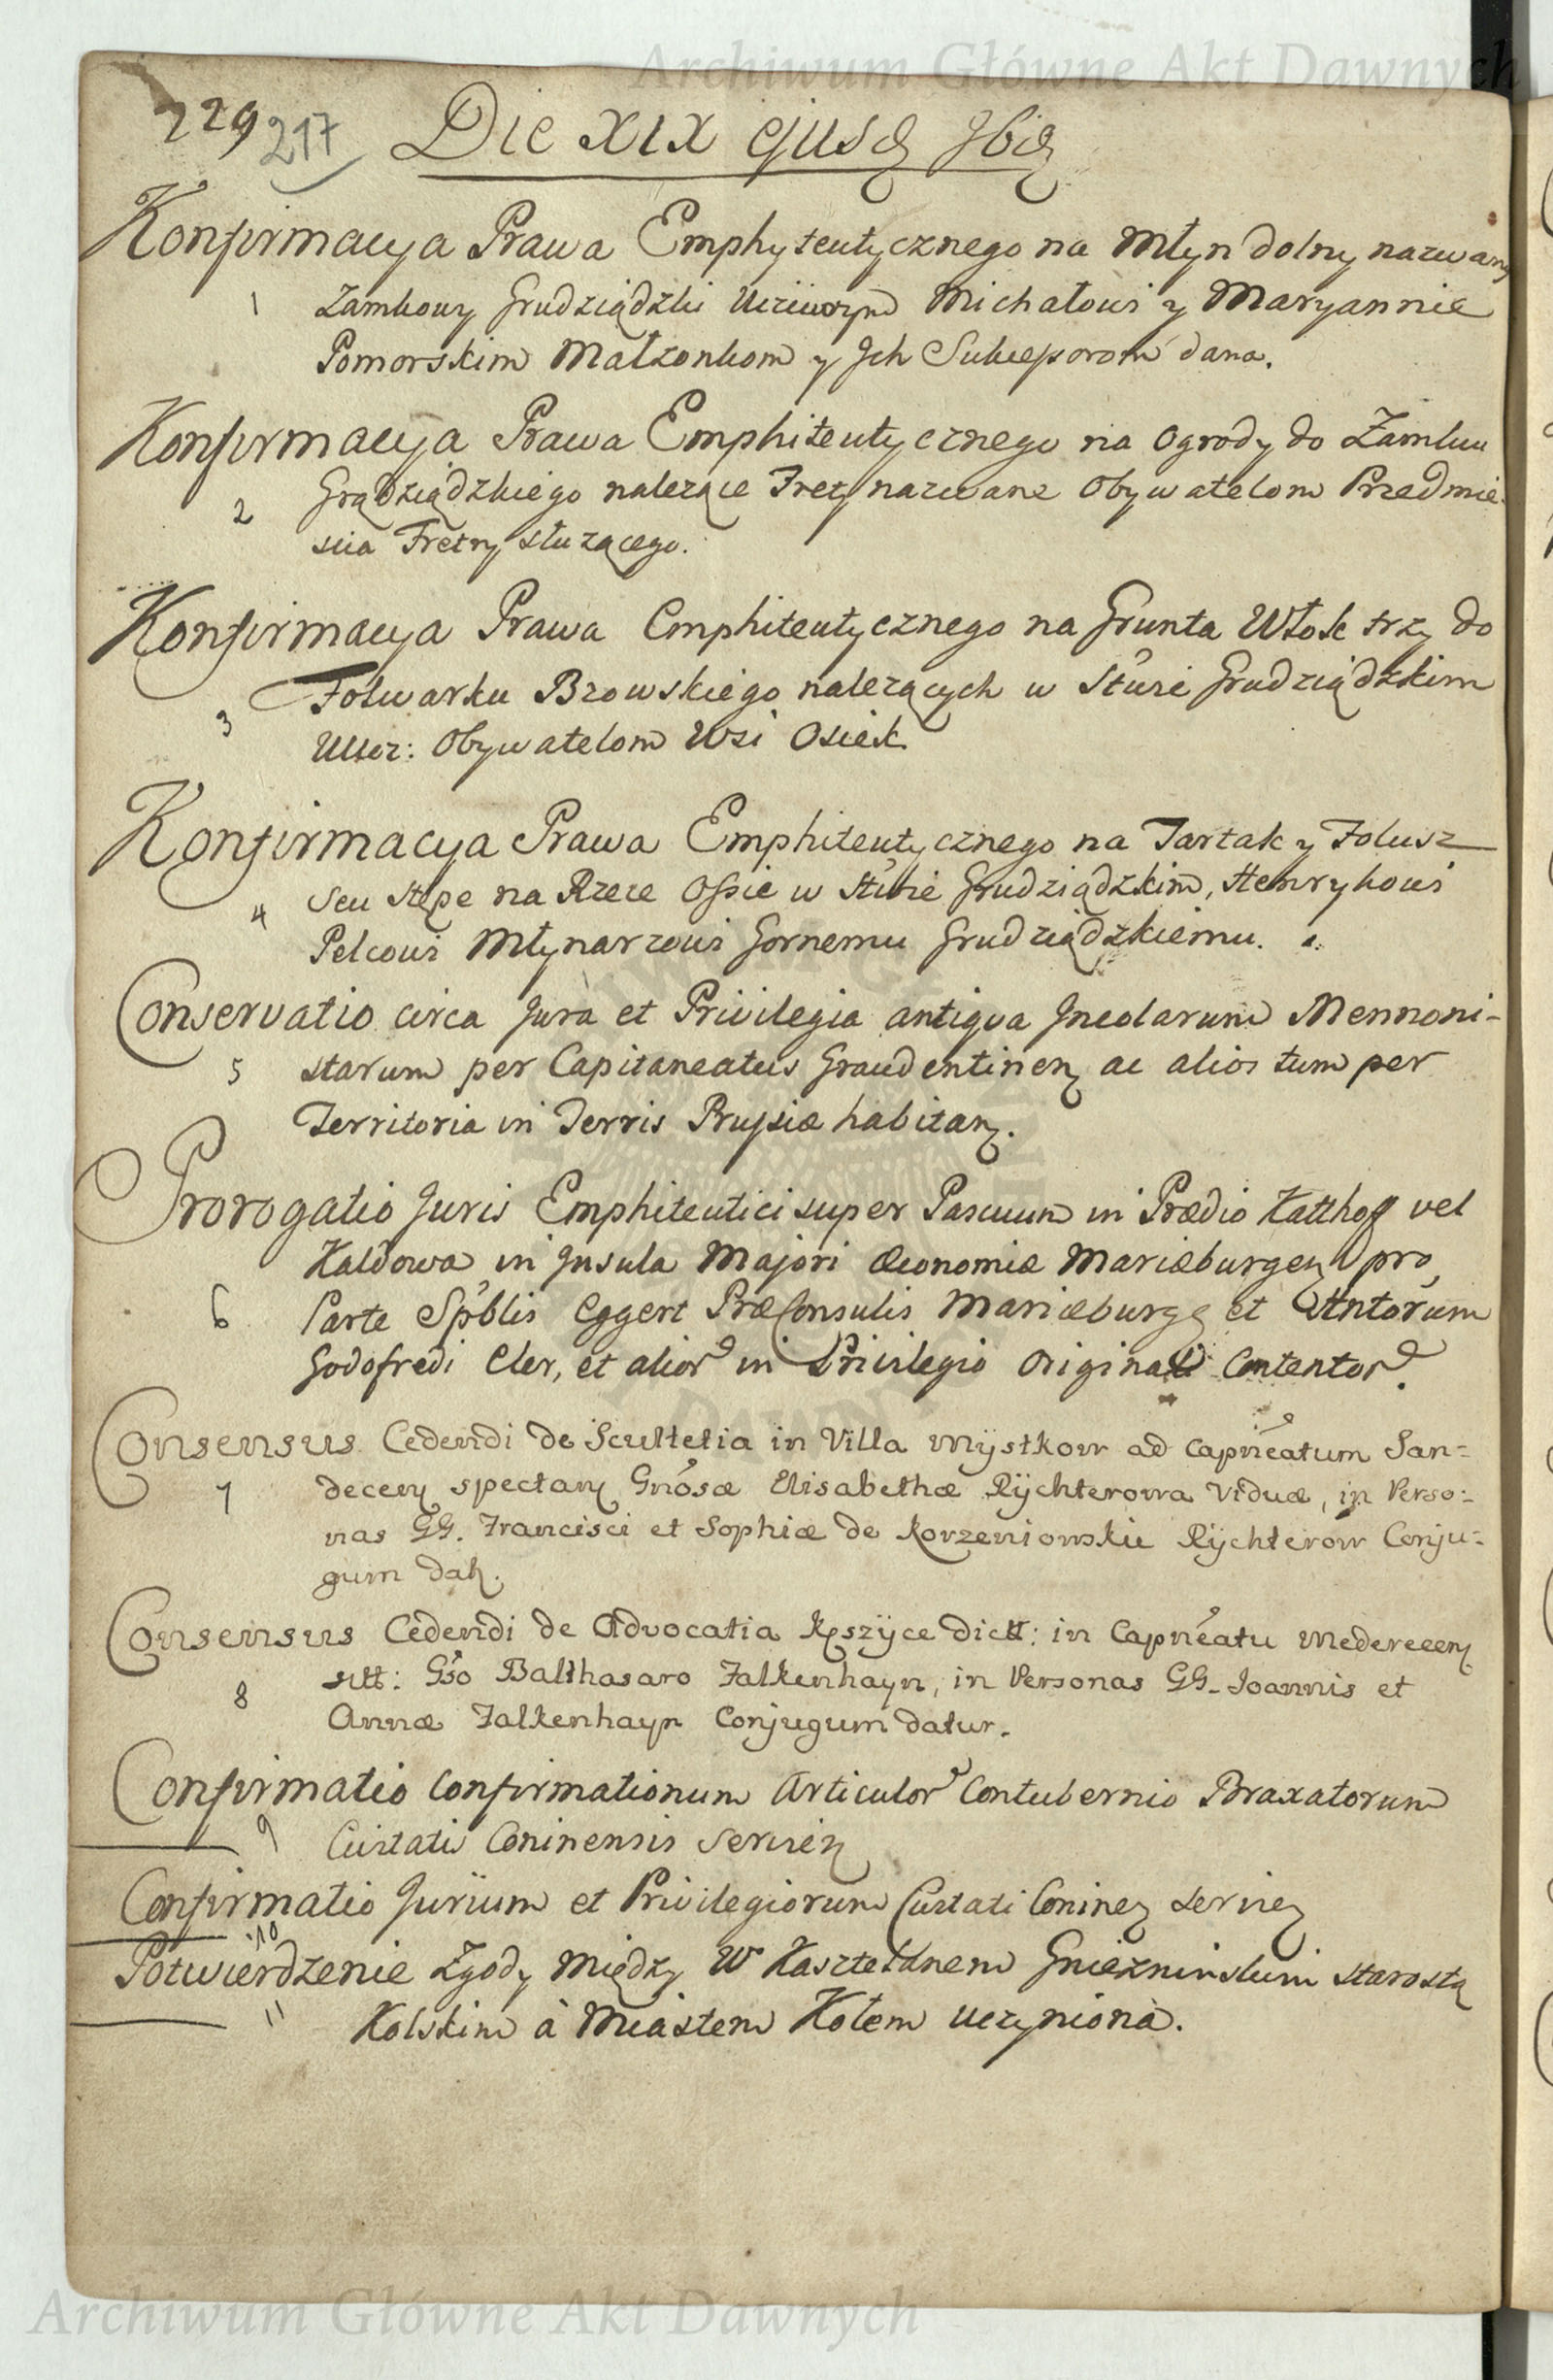 Archiwum Główne Akt Dawnych
229 217 Die XIX ejusd 9bid
Konfirmacya Prawa Emphyteutycznego na Młyn dolny nazwany
1 Zamkowy Grudziądzki Uczciwym Michałowi y Maryannie
Pomorskim Małżonkom y Jch Sukcessorom dana.
Konfirmacya Prawa Emphiteutycznego na Ogrody do Zamku
2 Grądziądzkiego nalezące Frety nazwane Obywatelom Przedmie-
scia Fretry słuzącego.
Konfirmacya Prawa Emphiteutycznego na Grunta Włok trzy do
3 Folwarku Bzowskiego nalezących w Stwie Grudziądzkim
Uccz: Obywatelom Wsi Osiek
Konfirmacya Prawa Emphiteutycznego na Tartak y Folusz
4 seu Stępe na Rzece Ossie w Stwie Grudziądzkim, Henrykowi
Pelcowi Młynarzowi Gornemu Grudziądzkiemu.
Conservatio circa Jura et Privilegia antiqua Jncolarum Mennoni-
5 starum per Capitaneatus Graudentinen ac alios tum per
Territoria in Terris Prussiæ habitan.
Prorogatio Juris Emphiteutici super Pascuum in Prædio Katthoff vel
Kaldowa in Jnsula Majori Œconomiæ Mariæburgen pro
6 Parte Spblis Eggert PræConsulis Mariæburg et
Godofredi Cler, et alior in Privilegio Originali Contentor.
Consensus Cedendi de Scultetia in Villa Mystkow ad Capneatum San-
7 decen spectan Gnosæ Elisabethæ Rychterowa Viduæ, in Perso-
nas GG. Francisci et Sophiæ de Korzeniowskie Rychterow Conju-
gum dat.
Consensus Cedendi de Advocatia Kpszyce dictt: in Capneatu Medereceen
8 sitt: Gso Balthasaro Falkenhayn, in Personas GG. Joannis et
Annæ Falkenhayn Conjugum datur.
Confirmatio Confirmationum Articulor Contubernio Braxatorum
9 Civitatis Coninensis Servien
Confirmatio Jurium et Privilegiorum Civitati Coninen servien
10
Potwierdzenie Zgody Między W Kasztelanem Gniezninskim Starostą
11 Kolskim à Miastem Kołem uczyniona.
Archiwum Główne Akt Dawnych